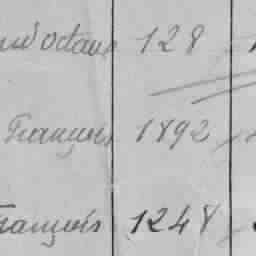 octave 128
François 1892
François 1248